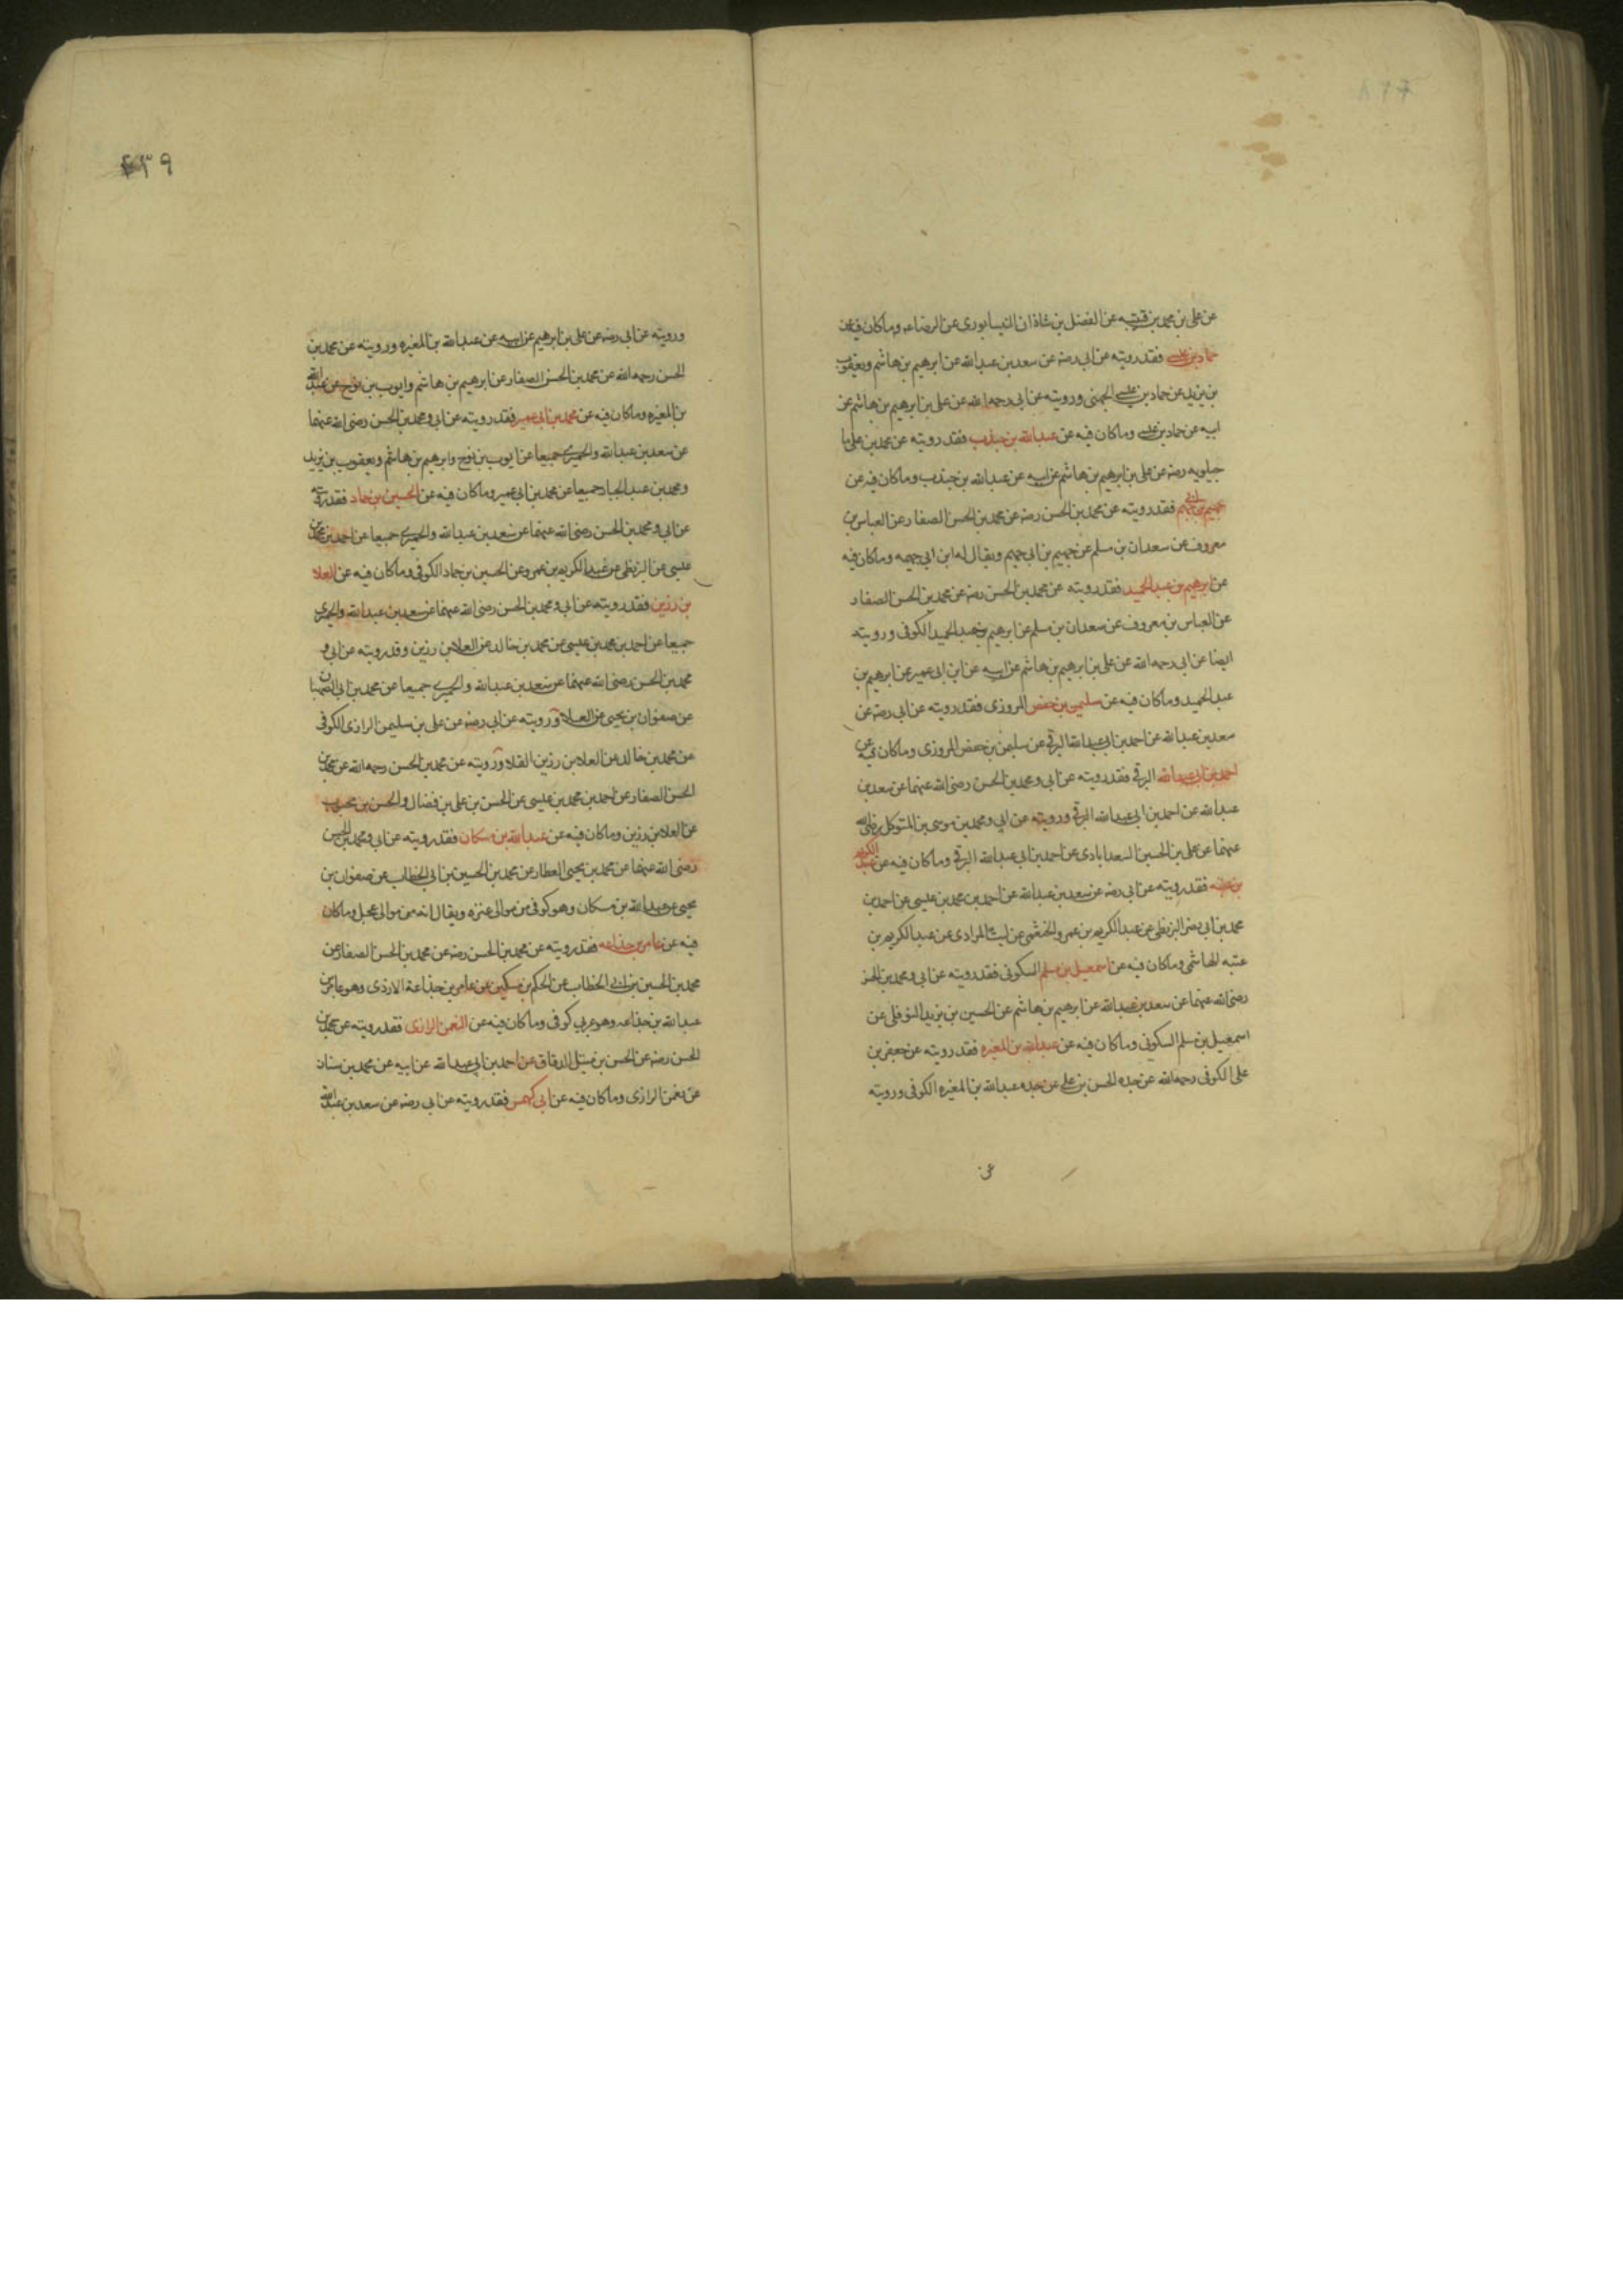 عن علي بن محمد بن قتيبه عن الفضل بن شاذان النيسابوري عن الرضا ع وماكان فيه عن
حماد بن عيسى فقد رويته عن ابي رضه عن سعد بن عبدالله عن ابرهيم بن هاشم ويعقوب
بن يزيد عن حماد بن عيسى الجهني ورويته عن ابي رحمه الله عن علي بن ابرهيم بن هاشم عن
ابيه عن حماد بن عيسى وماكان فيه عن عبدالله بن جندب فقد رويته عن محمد بن علي ما
جيلويه رضه عن علي بن ابرهيم بن هاشم عن ابيه عن عبدالله بن جندب وماكان فيه عن
جهيم بن ابي جهيم فقد رويته عن محمد بن الحسن رضه عن محمد بن الحسن الصفار عن العباس بن
معروف عن سعدان بن مسلم عن جهيم بن ابي جهيم ويقال له ابن ابي جهمه وماكان فيه
عن ابرهيم بن عبد الحميد فقد رويته عن محمد بن الحسن رضه عن محمد بن الحسن الصفار
عن العباس بن معروف عن سعدان بن مسلم عن ابرهيم بن عبد الحميد الكوفي ورويته
ايضا عن ابي رحمه الله عن علي بن ابرهيم بن هاشم عن ابيه عن ابن ابي عمير عن ابرهيم بن
عبد الحميد وماكان فيه عن سليمن بن حفص المروزي فقد رويته عن ابي رضه عن
سعد بن عبدالله عن احمد بن ابي عبدالله البرقي عن سليمن بن حفص المروزي وماكان فيه عن
احمد بن ابي عبدالله البرقي فقد رويته عن ابي ومحمد بن الحسن رضي الله عنهما عن سعد بن
عبدالله عن احمد بن ابي عبدالله البرقي ورويته عن ابي ومحمد بن موسى بن المتوكل رضي الله
عنهما عن علي بن الحسين السعدابادي عن احمد بن ابي عبدالله البرقي وماكان فيه عن عبد الكريم
بن عتبه فقد رويته عن ابي رضه عن سعد بن عبدالله عن احمد بن محمد بن عيسى عن احمد بن
محمد بن ابي نصر البزنطي عن عبد الكريم بن عمرو الخثعمي عن ليث المرادي عن عبد الكريم بن
عتبه الهاشمي وماكان فيه عن اسمعيل بن مسلم السكوني فقد رويته عن ابي ومحمد بن الحسن
رضي الله عنهما عن سعد بن عبدالله عن ابرهيم بن هاشم عن الحسين بن يزيد النوفلي عن
اسمعيل بن مسلم السكوني وماكان فيه عن عبدالله بن المغيره فقد رويته عن جعفر بن
علي الكوفي رحمه الله عن جده الحسن بن علي عن جده عبدالله بن المغيره الكوفي ورويته
عن
٤٣٩
ورويته عن ابي رضه عن علي بن ابرهيم عن ابيه عن عبدالله بن المغيره ورويته عن محمد بن
الحسن رحمه الله عن محمد بن الحسن الصفار عن ابرهيم بن هاشم وايوب بن نوح عن عبدالله
بن المغيره وماكان فيه عن محمد بن ابي عمير فقد رويته عن ابي ومحمد بن الحسن رضي الله عنهما
عن سعد بن عبدالله والحميري جميعا عن ايوب بن نوح وابرهيم بن هاشم ويعقوب بن يزيد
ومحمد بن عبد الجبار جميعا عن محمد بن ابي عمير وماكان فيه عن الحسين بن حماد فقد رويته
عن ابي ومحمد بن الحسن رضي الله عنهما عن سعد بن عبدالله والحميري جميعا عن احمد بن محمد بن
عيسى عن البزنطي عن عبد الكريم بن عمرو عن الحسين بن حماد الكوفي وماكان فيه عن العلا
بن رزين فقد رويته عن ابي ومحمد بن الحسن رضي الله عنهما عن سعد بن عبدالله والحميري
جميعا عن احمد بن محمد بن عيسى عن محمد بن خالد عن العلا بن رزين وقد رويته عن ابي و
محمد بن الحسن رضي الله عنهما عن سعد بن عبدالله والحميري جميعا عن محمد بن ابي الصهبان
عن صفوان بن يحيى عن العلا ورويته عن ابي رضه عن علي بن سليمن الرازي الكوفي
عن محمد بن خالد عن العلا بن رزين القلا ورويته عن محمد بن الحسن رحمه الله عن محمد بن
الحسن الصفار عن احمد بن محمد بن عيسى عن الحسن بن علي بن فضال والحسن بن محبوب
عن العلا بن رزين وماكان فيه عن عبدالله بن مسكان فقد رويته عن ابي ومحمد بن الحسن
رضي الله عنهما عن محمد بن يحيى العطار عن محمد بن الحسين بن ابي الخطاب عن صفوان بن
يحيى عن عبدالله بن مسكان وهو كوفي من موالي عنزه ويقال انه من موالي عجل وماكان
فيه عن عامر بن جذاعه فقد رويته عن محمد بن الحسن رضه عن محمد بن الحسن الصفار عن
محمد بن الحسين بن ابي الخطاب عن الحكم بن مسكين عن عامر بن جذاعة الازدي وهو عامر بن
عبدالله بن جذاعه وهو عربي كوفي وماكان فيه عن النعمن الرازي فقد رويته عن محمد بن
الحسن رضه عن الحسن بن متيل الدقاق عن احمد بن ابي عبدالله عن ابيه عن محمد بن سنان
عن نعمن الرازي وماكان فيه عن ابي كهمس فقد رويته عن ابي رضه عن سعد بن عبدالله